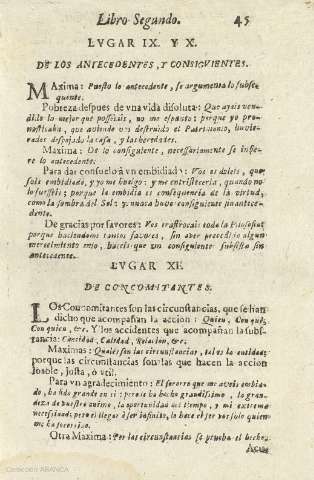 Libro Segundo. 45
LVGAR IX. Y X.
DE LOS ANTECEDENTES, Y CONSIGVIENTES.
MAxima: Puesto lo antecedente, se argumenta lo subse-
quente.
Pobreza despues de vna vida disoluta: Que ayais ven-
dido lo mejor que posseìais, no me espanto; porque yo pro-
nosticaba, que aviendo destruìdo el Patrimonio, huvie-
rades despojado la casa, y las heredades.
Maxima: De lo consiguiente, necessariamente se infie-
re lo antecedente.
Para dar consuelo à vn embidiado: Vos os doleis, que
sois embidiado, y yo me huelgo; y me entristeceria, quando no
lo fuessseis; porque la embidia es consequencia de la virtud,
como la sombra del Sol; y nunca huvo consiguiente sin antece-
dente.
De gracias por favores: Vos trastrocais toda la Filosofia;
porque haciendome tantos favores, sin aver precedido algun
merecimiento mio, haceis que vn consiguiente subsista sin
antecedente.
LVGAR XI.
DE CONCOMITANTES.
LOs Concomitantes son las circunstancias, que se han
dicho que acompañan la accion: Quien, Con què,
Con quien, &c. Y los accidentes que acompañan la subs-
tancia: Cantidad, Calidad, Relacion, &c.
Maximas: Quales son las circunstancias, tal es la entidad;
porque las circunstancias son las que hacen la accion
loable, justa, ò vtil.
Para vn agradecimiento: El favor que me aveis embia-
do, ha sido grande en sì: pero le ha hecho grandissimo, la gran-
deza de vuestro animo, la oportunidad del tiempo, y mi extrema
necessidad; pero el llegar à ser infinito, lo hace el ser vos solo quien
me ha favorecido.
Otra Maxima: Por las circunstancias se prueba el hecho
Colección ABANCA